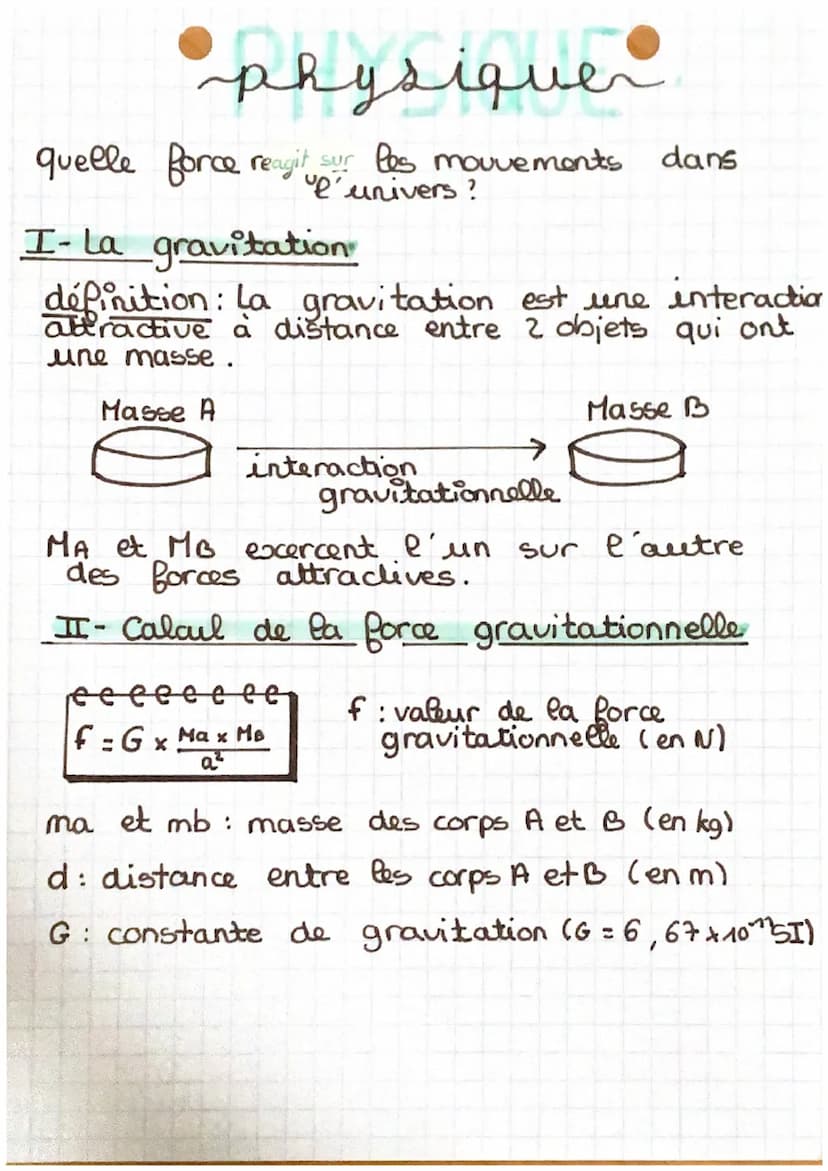 PHYSIQUE
physique
quelle force reagit sur les mouvements dans
l'univers ?
I- La gravitation
définition : La gravitation est une interaction
attractive à distance entre 2 objets qui ont
une masse .
Masse A
Masse B
interaction
gravitationnelle
MA et MB excercent l'un sur l'autre
des forces attractives.
II- Calcul de la force gravitationnelle
f = G x Ma x MB / a²
f : valeur de la force
gravitationnelle (en N)
ma et mb : masse des corps A et B (en kg)
d : distance entre les corps A et B (en m)
G : constante de gravitation (G = 6,67 x 10⁻¹¹ SI)